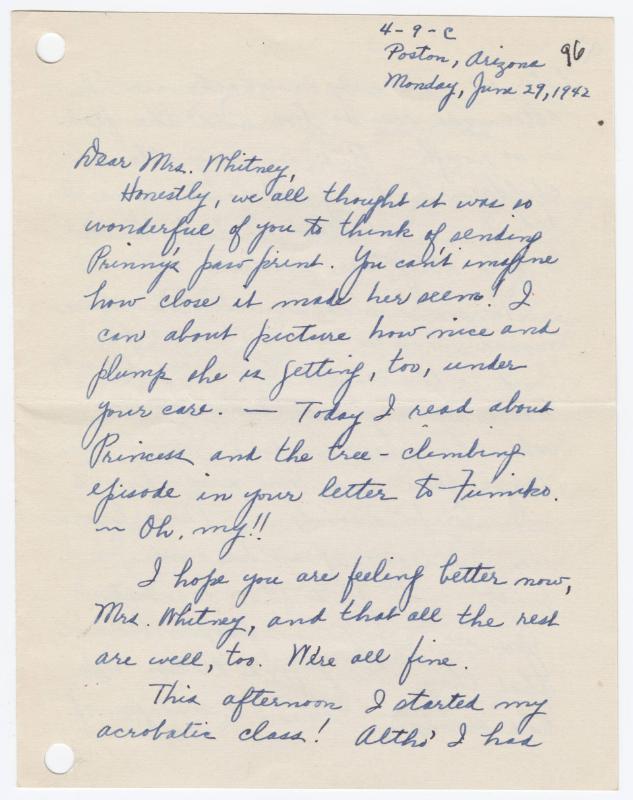 4-9-C
Poston, Arizona 96
Monday, June 29, 1942
Dear Mrs. Whitney,
Honestly, we all thought it was so
wonderful of you to think of sending
Prinny's paw print. You can't imagine
how close it made her seem! I
can about picture how nice and
plump she is getting, too, under
your care. — Today I read about
Princess and the tree-climbing
episode in your letter to Fumiko.
— Oh, my!!
I hope you are feeling better now,
Mrs. Whitney, and that all the rest
are well, too. We're all fine.
This afternoon I started my
acrobatic class! Altho' I had